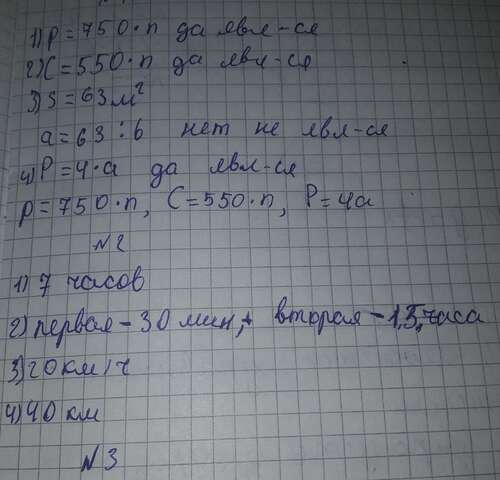 1) р = 750·n да явл-ся
2) С = 550·n да явл-ся
3) S = 63м²
а = 63 : b нет не явл-ся
4) Р = 4·а да явл-ся
р = 750·n, С = 550·n, Р = 4а
№2
1) 7 часов
2) первая - 30 мин, вторая - 1,5, часа
3) 20 км/ч
4) 40 км
№3